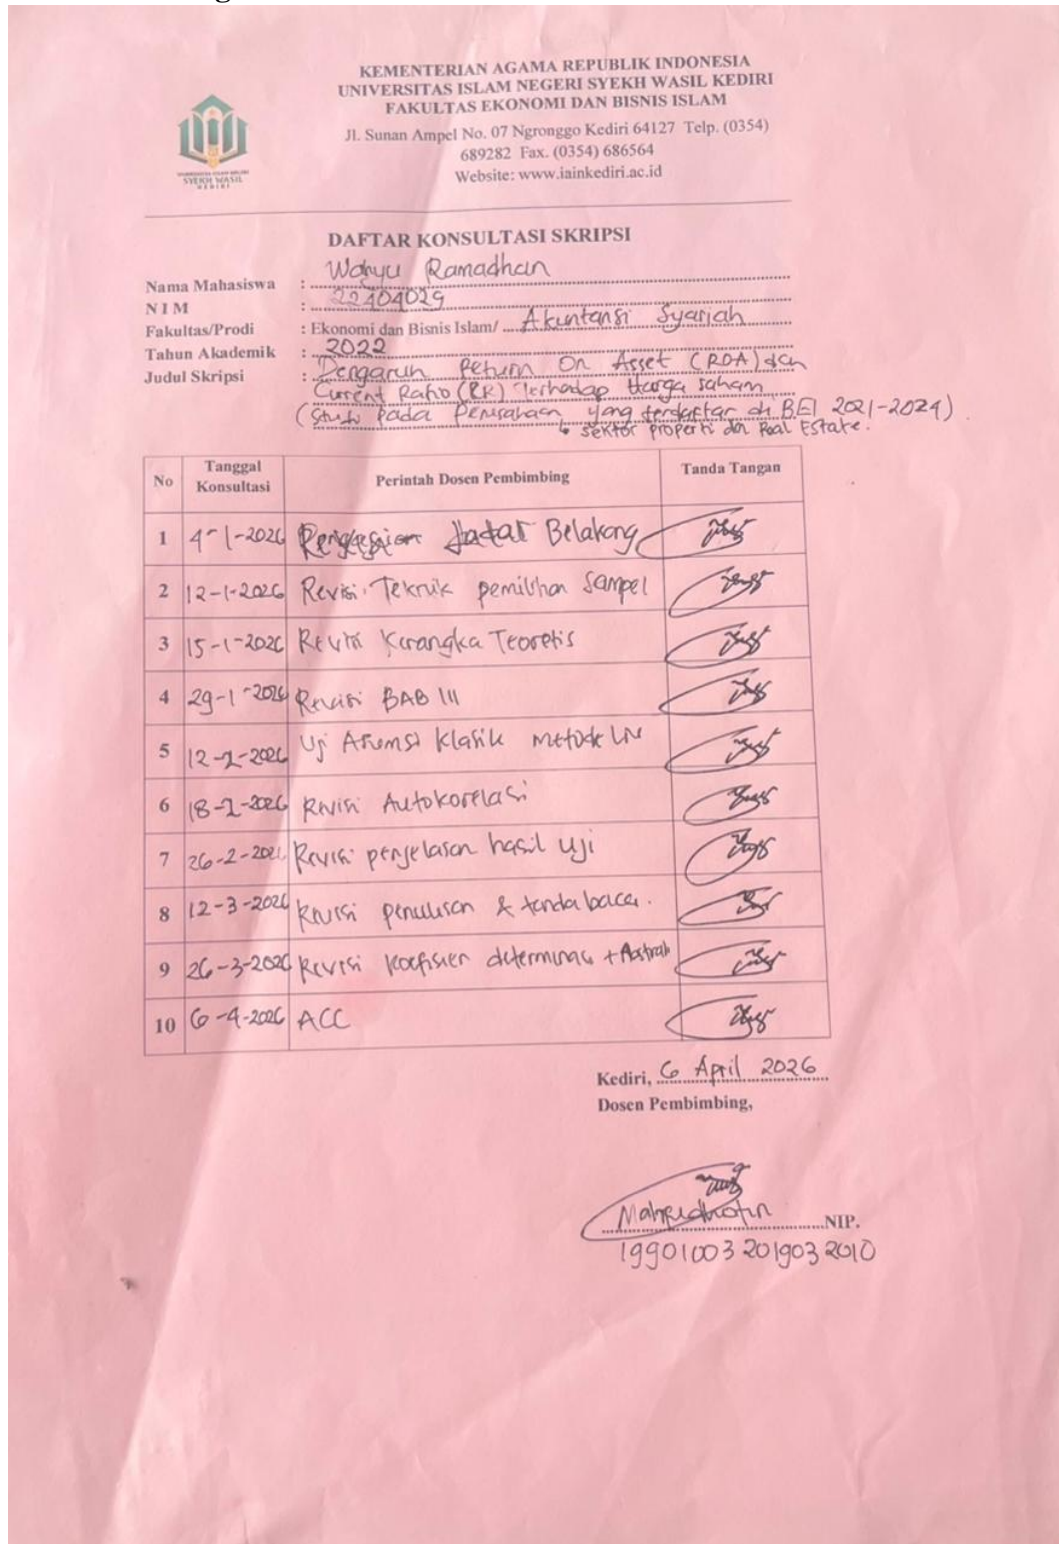 KEMENTERIAN AGAMA REPUBLIK INDONESIA
UNIVERSITAS ISLAM NEGERI SYEKH WASIL KEDIRI
FAKULTAS EKONOMI DAN BISNIS ISLAM
Jl. Sunan Ampel No. 07 Ngronggo Kediri 64127 Telp. (0354)
689282 Fax. (0354) 686564
Website: www.iainkediri.ac.id
SYEKH WASIL
KEDIRI
DAFTAR KONSULTASI SKRIPSI
Nama Mahasiswa : Wahyu Ramadhan
NIM : 22404029
Fakultas/Prodi : Ekonomi dan Bisnis Islam/ Akuntansi Syariah
Tahun Akademik : 2022
Judul Skripsi : Pengaruh Return On Asset (ROA) dan
Current Ratio (CR) Terhadap Harga Saham
(Studi Pada Perusahaan yang terdaftar di BEI 2021-2024)
↳ sektor properti dan Real Estate.
No Tanggal Konsultasi Perintah Dosen Pembimbing Tanda Tangan
1 4-1-2026 Latar Belakang
2 12-1-2026 Revisi Teknik pemilihan Sampel
3 15-1-2026 Revisi Kerangka Teoretis
4 29-1-2026 Revisi BAB III
5 12-2-2026 Uji Asumsi Klasik metode
6 18-2-2026 Revisi Autokorelasi
7 26-2-2026 Revisi penjelasan hasil Uji
8 12-3-2026 Revisi penulisan & tanda baca.
9 26-3-2026 Revisi koefisien determinasi + Abstrak
10 6-4-2026 ACC
Kediri, 6 April 2026
Dosen Pembimbing,
NIP.
19901003 201903 2010